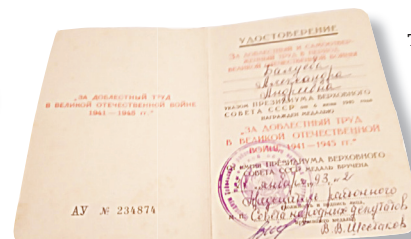 "ЗА ДОБЛЕСТНЫЙ ТРУД
В ВЕЛИКОЙ ОТЕЧЕСТВЕННОЙ ВОЙНЕ
1941—1945 гг."
АУ № 234874
УДОСТОВЕРЕНИЕ
ЗА ДОБЛЕСТНЫЙ И САМООТВЕР-
ЖЕННЫЙ ТРУД В ПЕРИОД
ВЕЛИКОЙ ОТЕЧЕСТВЕННОЙ ВОЙНЫ
Александра
УКАЗОМ ПРЕЗИДИУМА ВЕРХОВНОГО
СОВЕТА СССР от 6 июня 1945 года
НАГРАЖДЕН МЕДАЛЬЮ
"ЗА ДОБЛЕСТНЫЙ ТРУД
В ВЕЛИКОЙ ОТЕЧЕСТВЕННОЙ
ВОЙНЕ 1941—1945 гг."
ИМЕНИ ПРЕЗИДИУМА ВЕРХОВНОГО
СОВЕТА СССР МЕДАЛЬ ВРУЧЕНА
января 93
районного
Совета народных депутатов
В.В. Шестаков